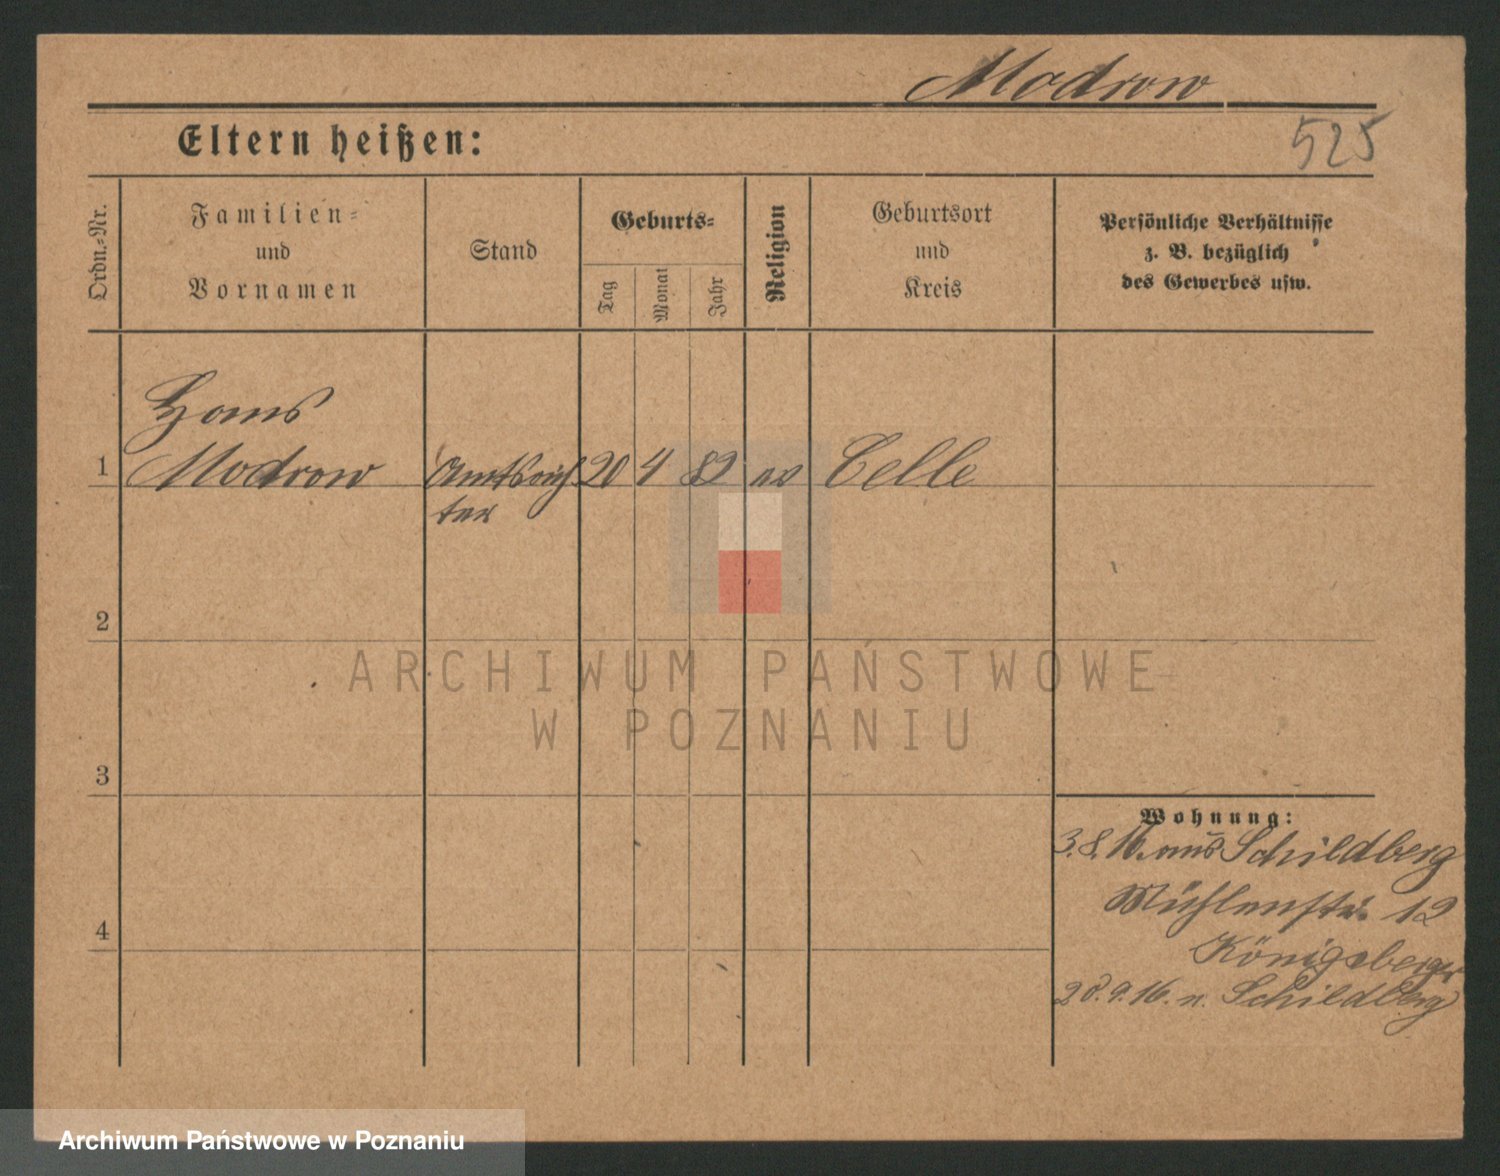 Modrow
525
Eltern heißen:
Ordn.-Nr.
Familien-
und
Vornamen
Stand
Geburts-
Tag
Monat
Jahr
Religion
Geburtsort
und
Kreis
Persönliche Verhältnisse
z. B. bezüglich
des Gewerbes usw.
Hans
1 Modrow Amtsrich 20 4 82 ev Celle
ter
2
3
4
Wohnung:
3.8.16. aus Schildberg
Mühlenstr. 12
Königsberger
28.9.16. n. Schildberg
ARCHIWUM PAŃSTWOWE
W POZNANIU
Archiwum Państwowe w Poznaniu